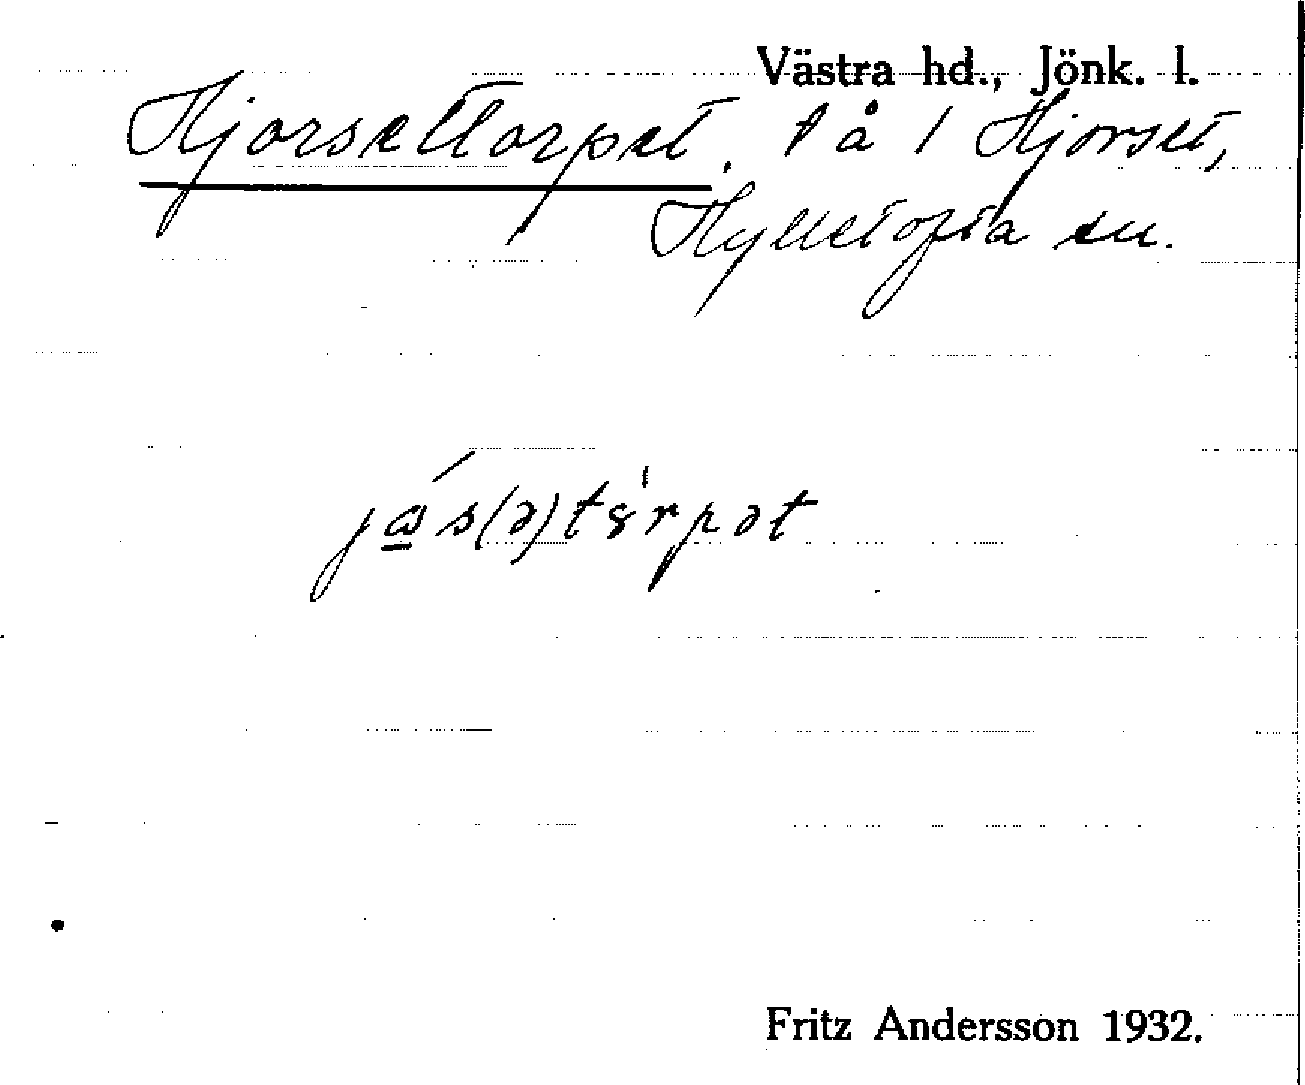 Västra hd., Jönk. l.
Hjorsettorpet, t å 1 Hjorset,
Hylletofta sn.
jɷ́s(ə)tȣ̍rpət
Fritz Andersson 1932.